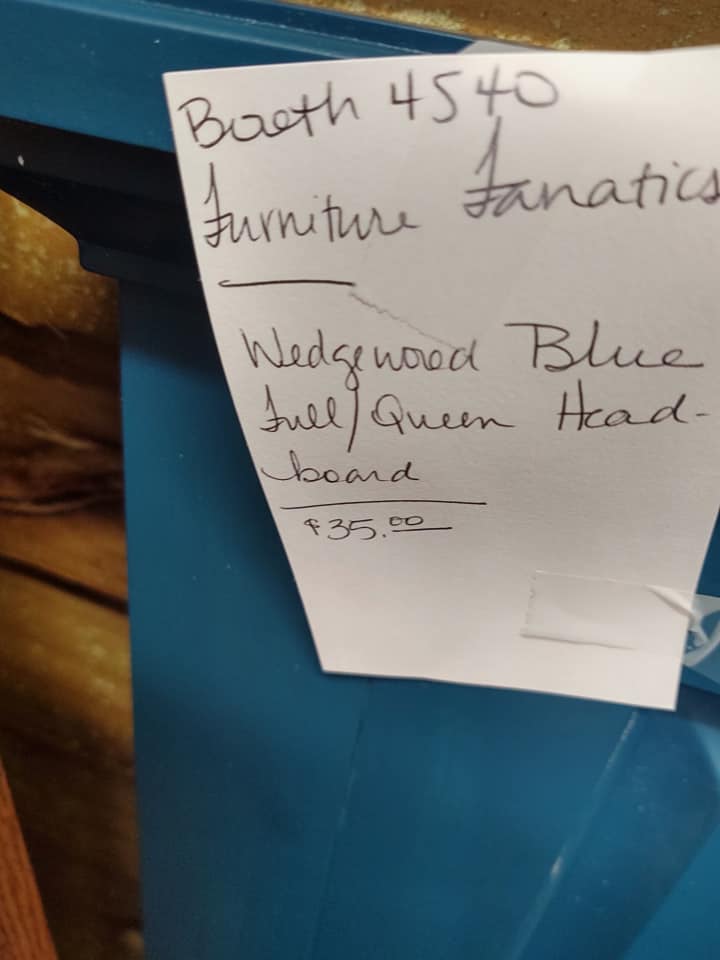 Booth 4540
Furniture Fanatics
Wedgewood Blue
Full/Queen Head-
board
$35.00